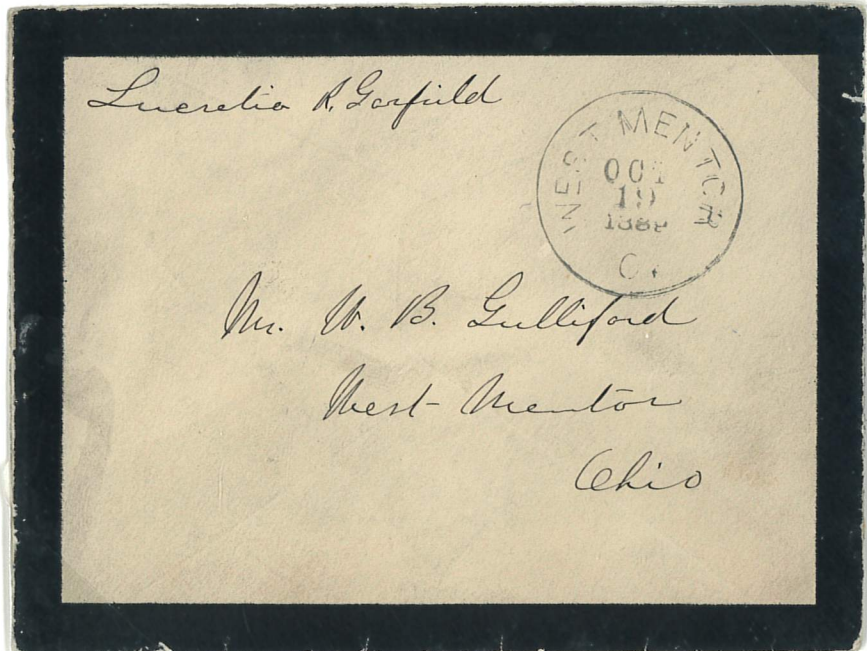 Lucretia R. Garfield
WEST MENTOR
OCT
19
1889
O.
Mr. W. B. Gulliford
West Mentor
Ohio